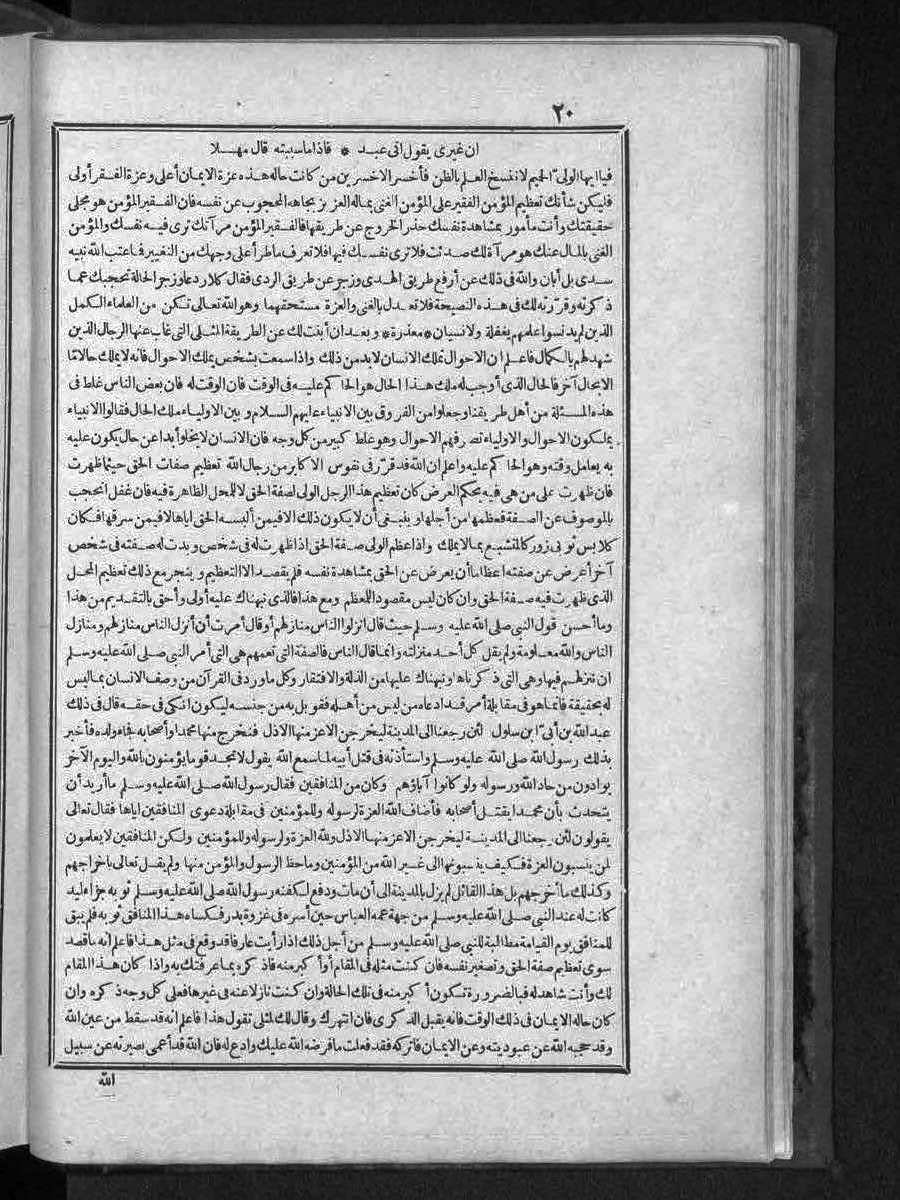 ٢٠
ان غيرى يقول انى عبد * فاذا ماسببته قال مهلا
فيا ايها الولى الحميم لا تفسخ العلم بالظن فأخسر الاخسرين من كانت حاله هذه عزة الايمان أعلى وعزة الفقر أولى
فليكن شأنك تعظيم المؤمن الفقير على المؤمن الغنى بماله العزيز بجاهه المحجوب عن نفسه فان الفقير المؤمن هو مجلى
حقيقتك وأنت مأمور بمشاهدة نفسك حذر الخروج عن طريقها فالفقير المؤمن مرآتك ترى فيه نفسك والمؤمن
الغنى بالمال عنك هو مرآة لك صدئت فلا ترى نفسك فيها فلا تعرف ماطرأ على وجهك من التغيير فما عتب الله نبيه
سدى بل أبان والله فى ذلك عن أرفع طريق الهدى وزجر عن طريق الردى فقال كلا ردعا وزجر الحالة تحجبك عما
ذكرته وقررته لك فى هذه النصيحة فلا تعدل بالغنى والعزة مستحقهما وهو الله تعالى تكن من العلماء الكمل
الذين لم يدنسوا علمهم بغفلة ولا نسيان * معذرة * وبعد ان أبنت لك عن الطريقة المثلى التى غاب عنها الرجال الذين
شهد لهم بالكمال فاعلم ان الاحوال تملك الانسان لابد من ذلك واذا سمعت بشخص يملك الاحوال فانه لا يملك حالا ما
الا بحال آخر فالحال الذى أوجب له ملك هذا الحال هو الحاكم عليه فى الوقت فان الوقت له فان بعض الناس غلط فى
هذه المسئلة من أهل طريقنا وجعلوا من الفروق بين الانبياء عليهم السلام وبين الاولياء ملك الحال فقالوا الانبياء
يملكون الاحوال والاولياء تصرفهم الاحوال وهو غلط كبير من كل وجه فان الانسان لا يخلو أبدا عن حال يكون عليه
به يعامل وقته وهو الحاكم عليه واعلم ان الله قد قرر فى نفوس الاكابر من رجال الله تعظيم صفات الحق حيثما ظهرت
فان ظهرت على من هى فيه بحكم العرض كان تعظيم هذا الرجل الولى لصفة الحق لا للمحل الظاهرة فيه فان غفل انحجب
بالموصوف عن الصفة فعظمها من أجلها وينبغى أن لا يكون ذلك الا فيمن ألبسه الحق اياها لا فيمن سرقها فكان
كلابس ثوبى زور كالمتشبع بما لا يملك واذا عظم الولى صفة الحق اذا ظهرت له فى شخص وبدت له صفته فى شخص
آخر أعرض عن صفته اعظاما أن يعرض عن الحق بمشاهدة نفسه فلم يقصد الا التعظيم وينجر مع ذلك تعظيم المحل
الذى ظهرت فيه صفة الحق وان كان ليس مقصودا للعظم ومع هذا فالذى نبهناك عليه أولى وأحق بالتقديم من هذا
وما أحسن قول النبى صلى الله عليه وسلم حيث قال انزلوا الناس منازلهم أو قال أمرت أن أنزل الناس منازلهم ومنازل
الناس والله معلومة ولم يقل كل أحد منزلته وانما قال الناس فالصفة التى تعمهم هى التى أمر النبى صلى الله عليه وسلم
ان تنزلهم فيها وهى التى ذكرناها ونبهناك عليها من الذلة والافتقار وكل ماورد فى القرآن من وصف الانسان بما ليس
له بحقيقة فانما هو فى مقابلة أمر قد ادعاه من ليس من أهله فقوبل به من جنسه ليكون أنكى فى حقه قال فى ذلك
عبد الله بن أبى ابن سلول لئن رجعنا الى المدينة ليخرجن الاعز منها الاذل فنخرج منها محمدا وأصحابه فجاء ولده فأخبر
بذلك رسول الله صلى الله عليه وسلم واستأذنه فى قتل أبيه لما سمع الله يقول لا تجد قوما يؤمنون بالله واليوم الآخر
يوادون من حاد الله ورسوله ولو كانوا آباؤهم وكان من المنافقين فقال رسول الله صلى الله عليه وسلم ما أريد أن
يتحدث بأن محمدا يقتل أصحابه فأضاف الله العزة لرسوله وللمؤمنين فى مقابلة دعوى المنافقين اياها فقال تعالى
يقولون لئن رجعنا الى المدينة ليخرجن الاعز منها الاذل ولله العزة ولرسوله وللمؤمنين ولكن المنافقين لا يعلمون
لمن ينسبون العزة فكيف ينسبونها الى غير الله من المؤمنين وما حظ الرسول والمؤمن منها ولم يقل تعالى باخراجهم
وكذلك ما أخرجهم بل هذا القائل لم يزل بالمدينة الى أن مات ودفع لكفنه رسول الله صلى الله عليه وسلم ثوبه جزاء ليد
كانت له عند النبى صلى الله عليه وسلم من جهة عمه العباس حين أسره فى غزوة بدر فكساه هذا المنافق ثوبه فلم يبق
للمنافق يوم القيامة مطالبة للنبى صلى الله عليه وسلم من أجل ذلك اذا رأيت عارفا قد وقع فى مثل هذا فاعلم انه ما قصد
سوى تعظيم صفة الحق وتصغير نفسه فان كنت مثله فى المقام أو أكبر منه فاذكره بما عرفتك به واذا كان هذا المقام
لك وأنت شاهد له فبالضرورة تكون أكبر منه فى تلك الحالة وان كنت نازلا عنه فى غيرها فعلى كل وجه ذكره وان
كان حاله الايمان فى ذلك الوقت فانه يقبل الذكرى فان انتهرك وقال لك لمثلى تقول هذا فاعلم انه قد سقط من عين الله
وقد حجبه الله عن عبوديته وعن الايمان فاتركه فقد فعلت ما فرضه الله عليك وادع له فان الله قد أعمى بصيرته عن سبيل
الله